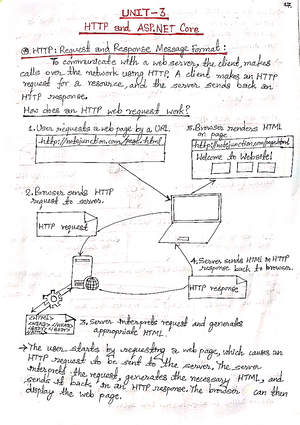 UNIT-3
HTTP and ASP.NET Core
HTTP: Request and Response Message Format:
To communicate with a web server, the client makes
calls over the network using HTTP. A client makes an HTTP
request for a resource, and the server sends back an
HTTP response.
How does an HTTP web request work?
1. User requests a web page by a URL.
2. Browser sends HTTP
request to server.
HTTP request
5. Browser renders HTML
on page.
Welcome to Website!
4. Server sends HTML in HTTP
response back to browser.
HTTP response
<HTML>
3. Server interprets request and generates
appropriate HTML.
→ The user starts by requesting a web page, which causes an
HTTP request to be sent to the server. The server
interprets the request, generates the necessary HTML, and
sends it back in an HTTP response. The browser can then
display the web page.